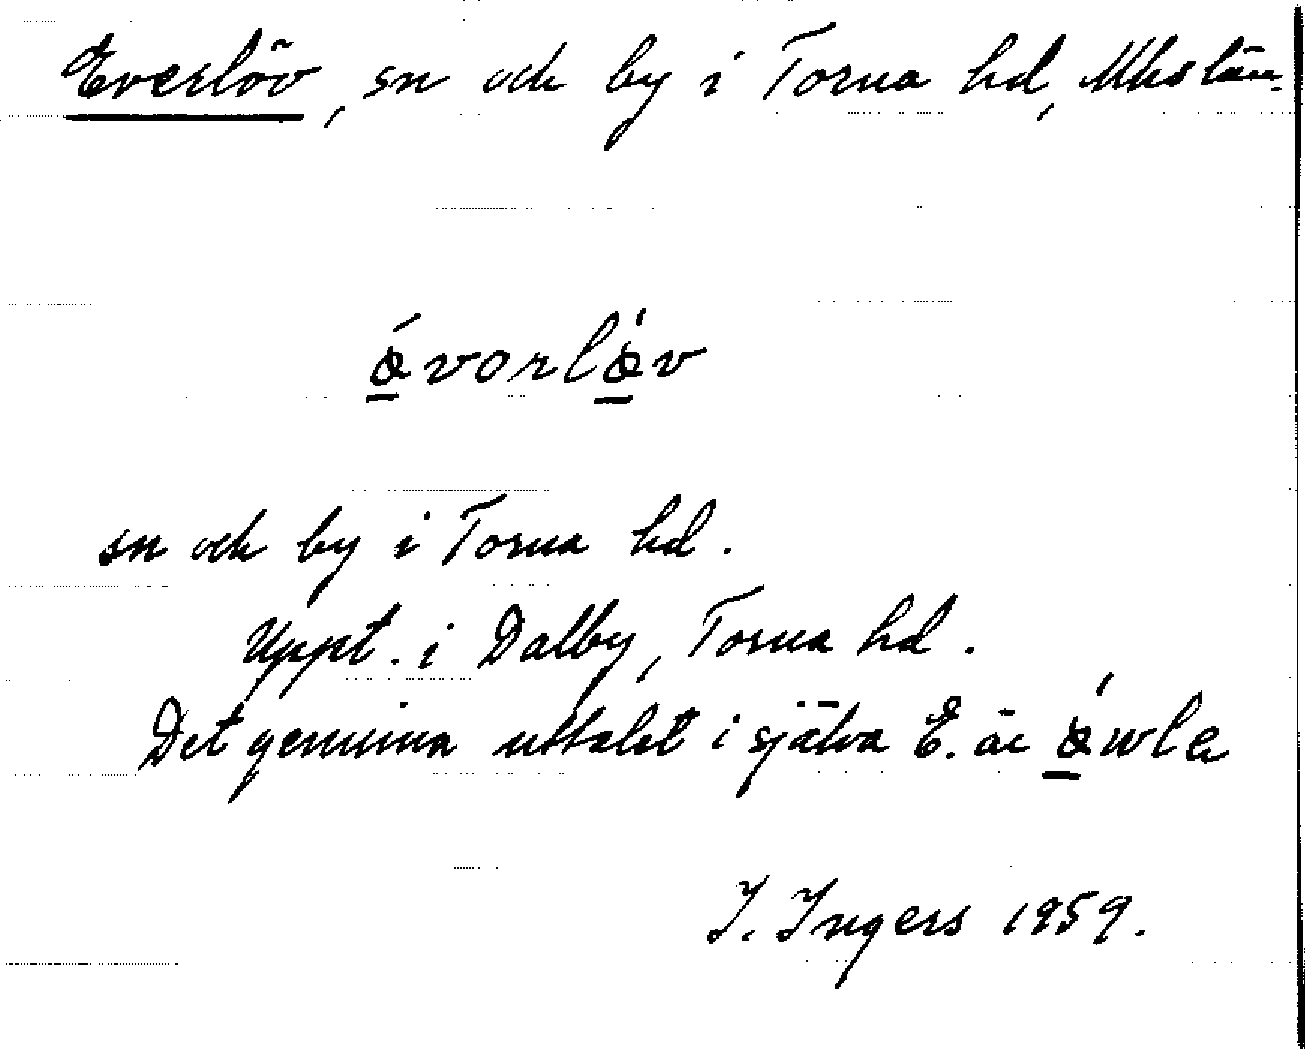 Everlöv, sn och by i Torna hd, Mhs län.
ǿvorlǿv
sn och by i Torna hd.
Uppt. i Dalby, Torna hd.
Det genuina uttalet i själva E. är ǿwle
I. Ingers 1959.